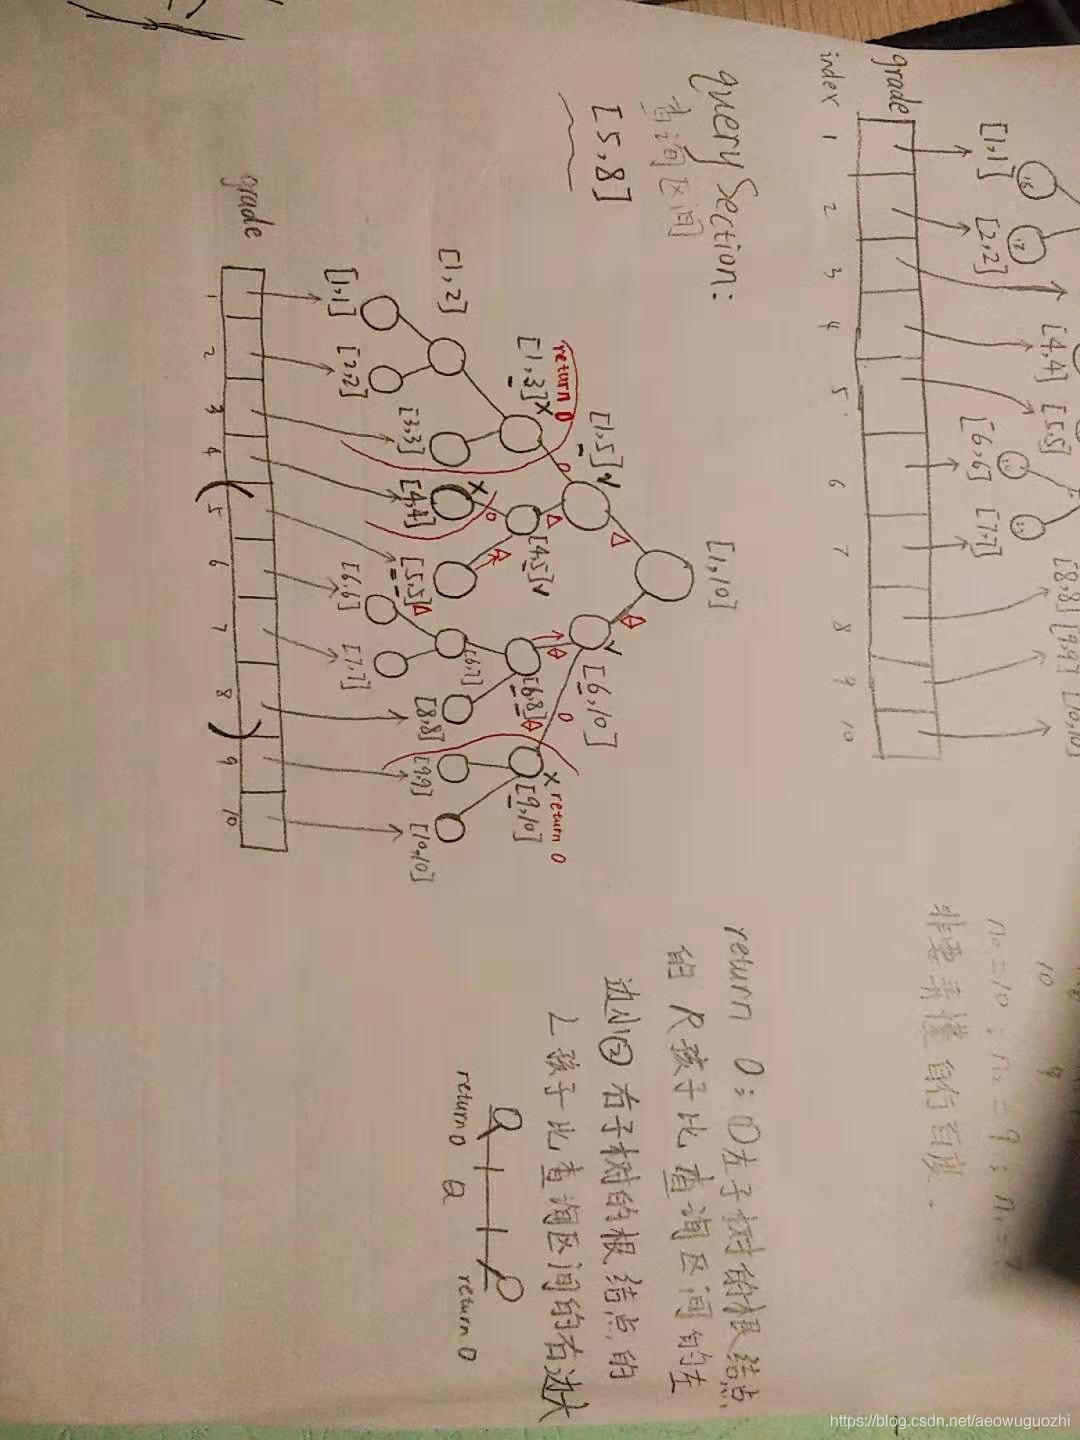 grade
index 1 2 3 4 5 6 7 8 9 10
[1,1] [2,2] [4,4] [5,5] [6,6] [7,7] [8,8] [9,9] [10,10]
10 9
n₀=10; n₂=9; n₁=
非要弄懂自行百度.
query Section:
查询区间
[5,8]
[1,10]
[1,5]√ √ [6,10]
return 0 [1,3]× [4,5]√ [6,8] × return 0 [9,10]
[1,2] [6,7]
[1,1] [2,2] [3,3] × [4,4] [5,5] [6,6] [7,7] [8,8] [9,9] [10,10]
grade
1 2 3 4 ( 5 6 7 8 ) 9 10
return 0: ①左子树的根结点
的R孩子比查询区间的左
边小②右子树的根结点的
L孩子比查询区间的右边大
return 0 a return 0
https://blog.csdn.net/aeowuguozhi